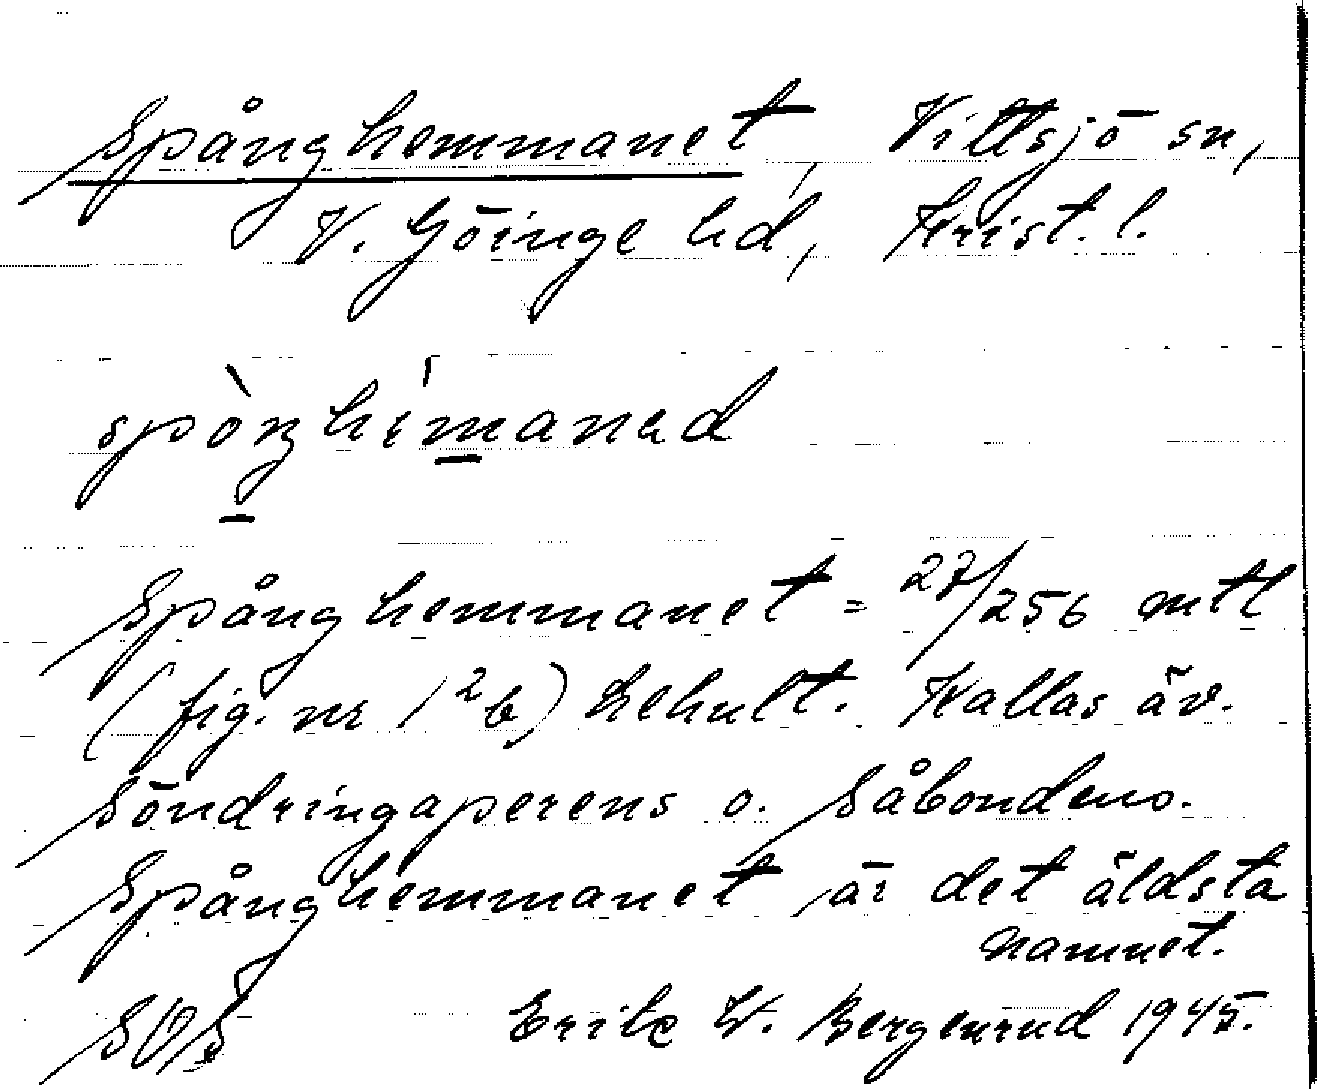 Spånghemmanet, Vittsjö sn,
V. Göinge hd, Krist. l.
Spånghemmanet = 27/256 mtl
(fig. nr 1²b) Ekhult. Kallas äv.
Söndringaperens o. Såbondens.
Spånghemmanet är det äldsta
namnet.
SOS Erik W. Bergenrud 1945.